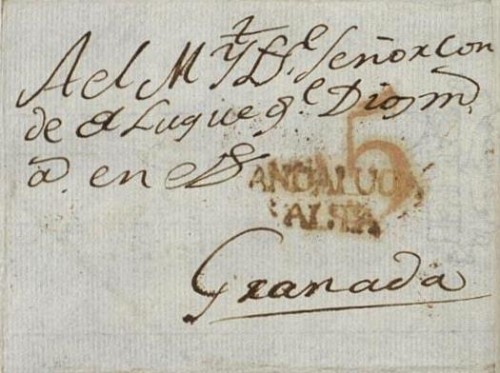 Al M Y. Sr. Señor Con
de de Luque q.e Dios m.
a. en
5
ANDALUCIA
ALTA
Granada